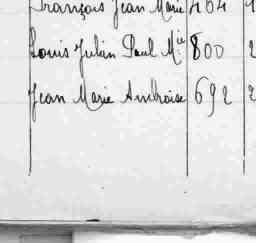 François Jean Marie 464
Louis Julien Paul Mie 800 2
Jean Marie Ambroise 692 2